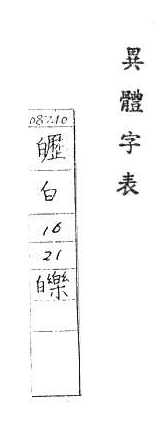 異體字表
白
16
21
皪